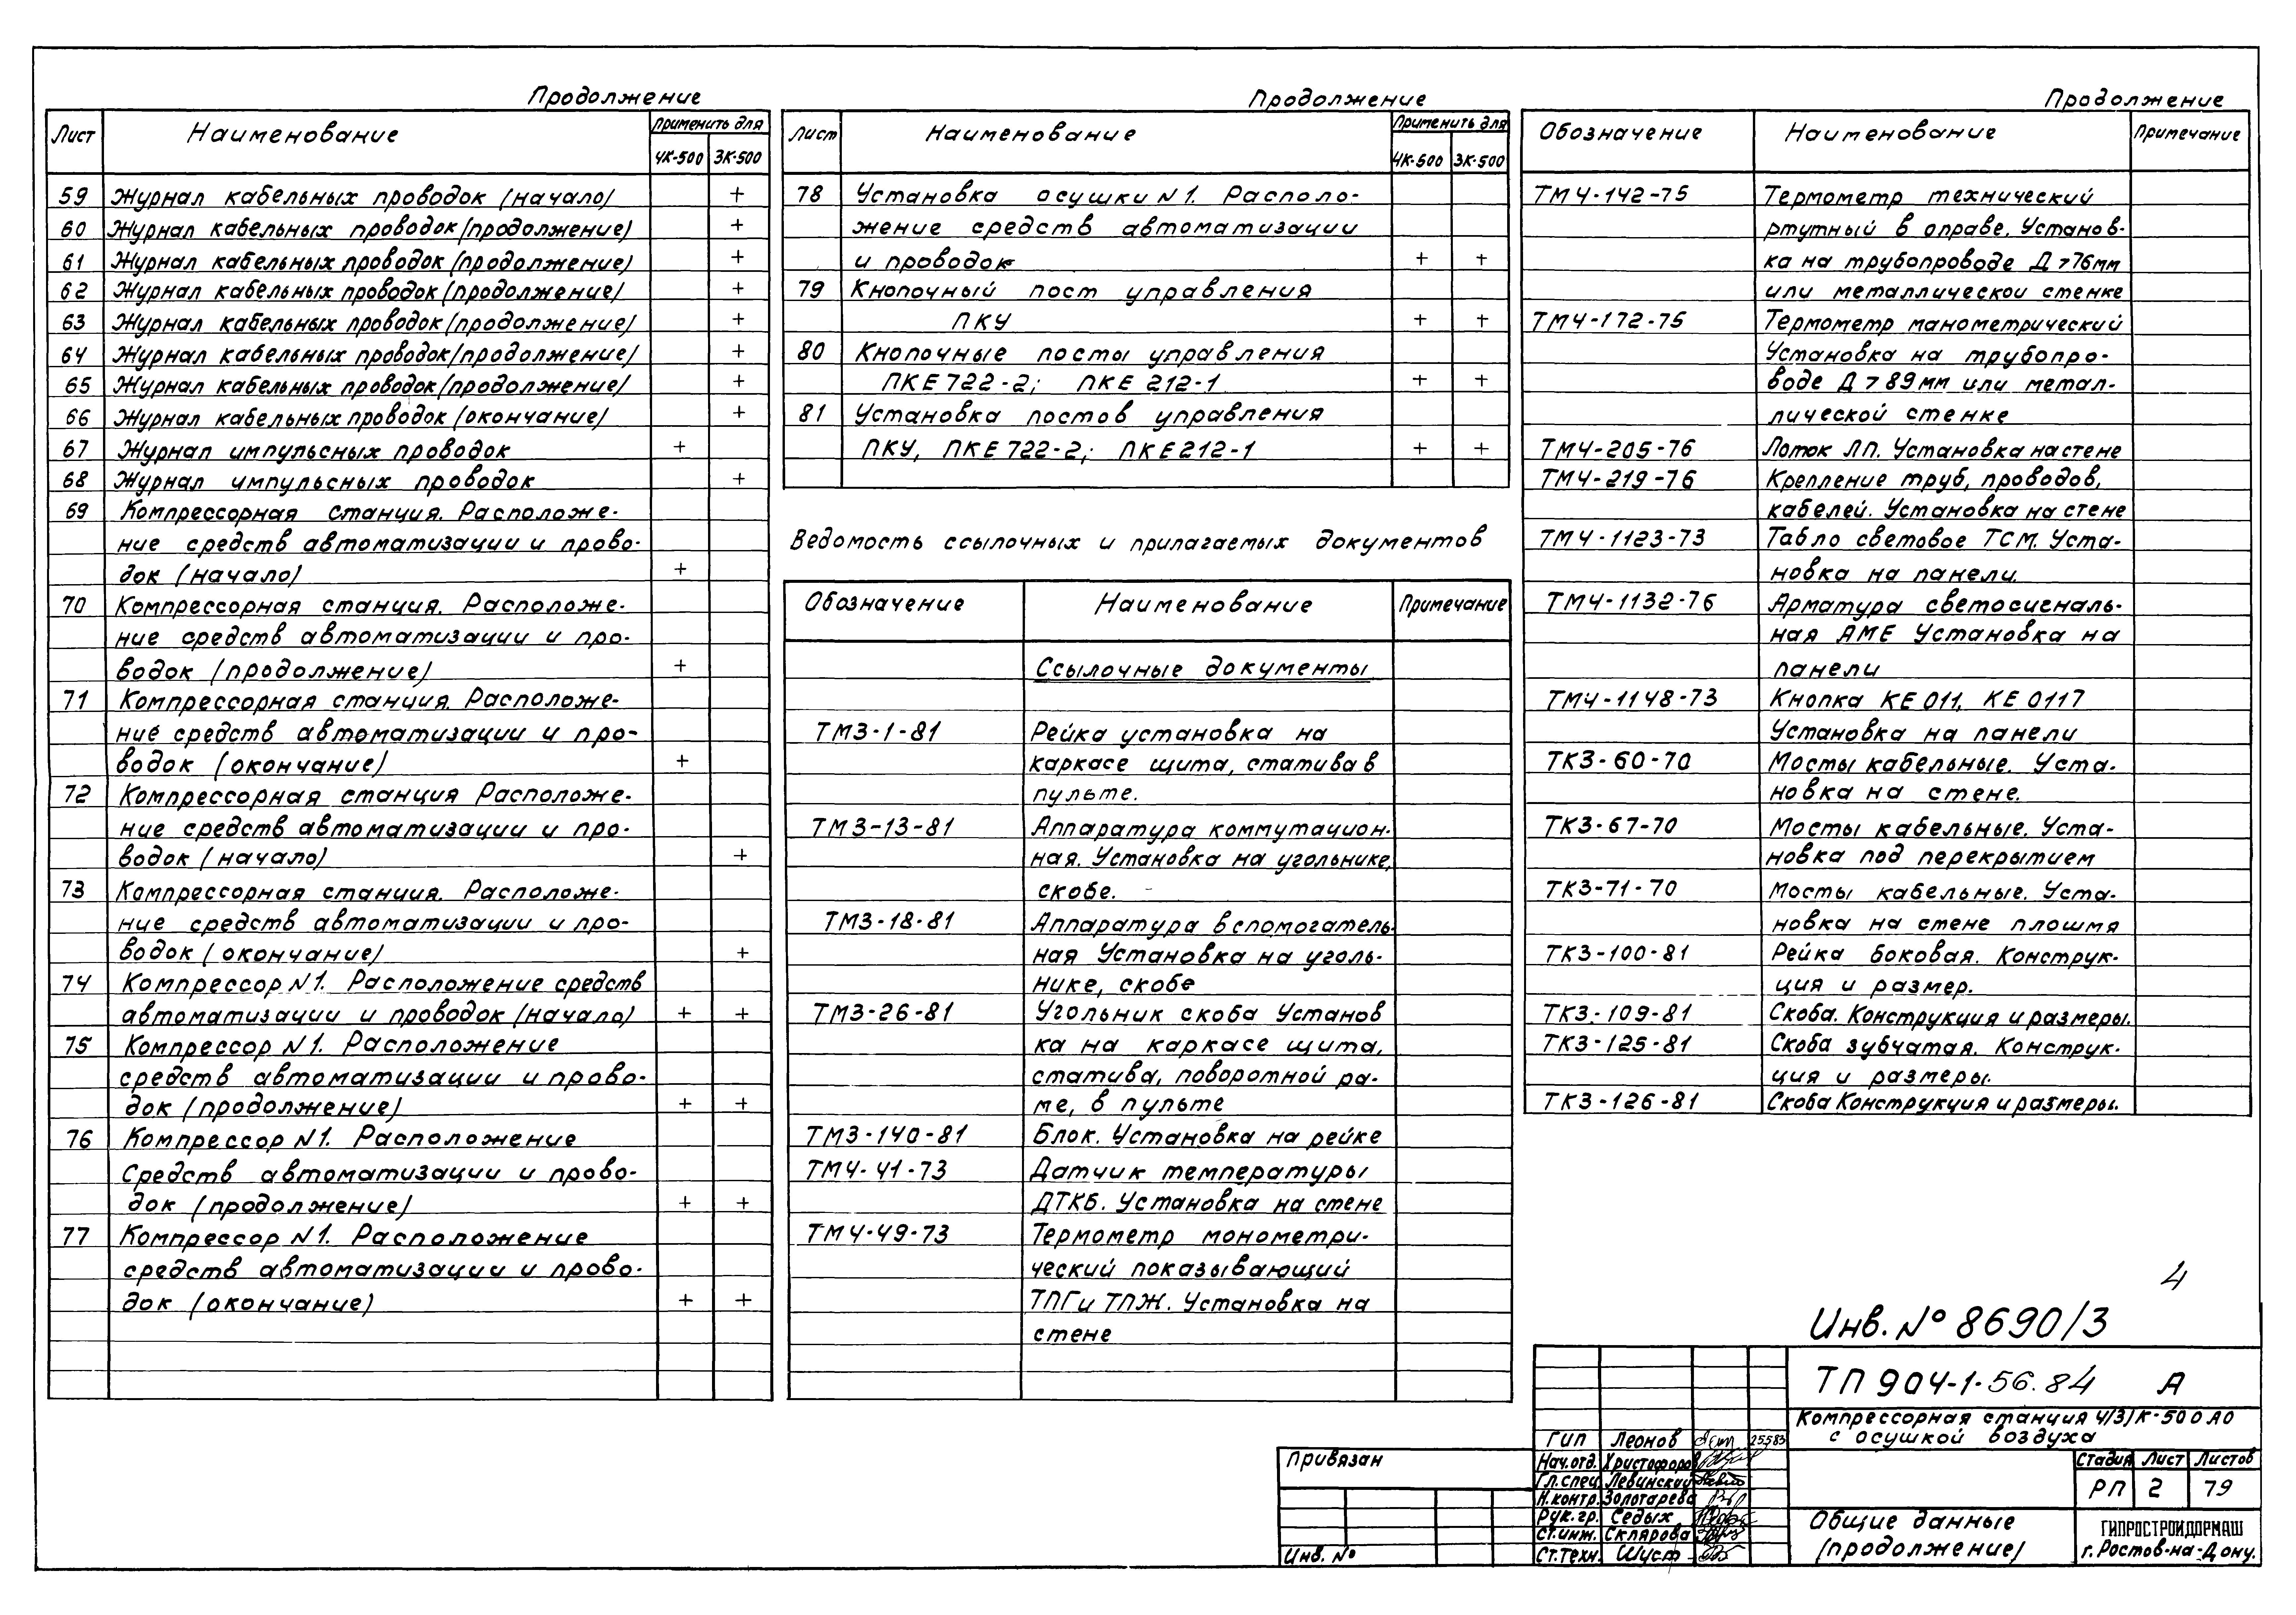 Продолжение
Лист Наименование Применить для
4К-500 3К-500
59 Журнал кабельных проводок (начало) +
60 Журнал кабельных проводок (продолжение) +
61 Журнал кабельных проводок (продолжение) +
62 Журнал кабельных проводок (продолжение) +
63 Журнал кабельных проводок (продолжение) +
64 Журнал кабельных проводок (продолжение) +
65 Журнал кабельных проводок (продолжение) +
66 Журнал кабельных проводок (окончание) +
67 Журнал импульсных проводок +
68 Журнал импульсных проводок +
69 Компрессорная станция. Расположе-
ние средств автоматизации и прово-
док (начало) +
70 Компрессорная станция. Расположе-
ние средств автоматизации и про-
водок (продолжение) +
71 Компрессорная станция. Расположе-
ние средств автоматизации и про-
водок (окончание) +
72 Компрессорная станция Расположе-
ние средств автоматизации и про-
водок (начало) +
73 Компрессорная станция. Расположе-
ние средств автоматизации и про-
водок (окончание) +
74 Компрессор N1. Расположение средств
автоматизации и проводок (начало) + +
75 Компрессор N1. Расположение
средств автоматизации и прово-
док (продолжение) + +
76 Компрессор N1. Расположение
Средств автоматизации и прово-
док (продолжение) + +
77 Компрессор N1. Расположение
средств автоматизации и прово-
док (окончание) + +
Продолжение
Лист Наименование Применить для
4К-500 3К-500
78 Установка осушки N1. Располо-
жение средств автоматизации
и проводок + +
79 Кнопочный пост управления
ПКУ + +
80 Кнопочные посты управления
ПКЕ 722-2; ПКЕ 212-1 + +
81 Установка постов управления
ПКУ, ПКЕ 722-2; ПКЕ212-1 + +
Ведомость ссылочных и прилагаемых документов
Обозначение Наименование Примечание
Ссылочные документы
ТМ3-1-81 Рейка установка на
каркасе щита, статива в
пульте.
ТМ3-13-81 Аппаратура коммутацион-
ная. Установка на угольнике,
скобе.
ТМ3-18-81 Аппаратура вспомогатель-
ная Установка на уголь-
нике, скобе
ТМ3-26-81 Угольник скоба Установ
ка на каркасе щита,
статива, поворотной ра-
ме, в пульте
ТМ3-140-81 Блок. Установка на рейке
ТМ4-41-73 Датчик температуры
ДТКБ. Установка на стене
ТМ4-49-73 Термометр монометри-
ческий показывающий
ТПГ и ТПЖ. Установка на
стене
Продолжение
Обозначение Наименование Примечание
ТМ4-142-75 Термометр технический
ртутный в оправе. Установ-
ка на трубопроводе Д>76мм
или металлической стенке
ТМ4-172-75 Термометр манометрический
Установка на трубопро-
воде Д>89мм или метал-
лической стенке
ТМ4-205-76 Лоток ЛП. Установка на стене
ТМ4-219-76 Крепление труб, проводов,
кабелей. Установка на стене
ТМ4-1123-73 Табло световое ТСМ. Уста-
новка на панели.
ТМ4-1132-76 Арматура светосигналь-
ная АМЕ Установка на
панели
ТМ4-1148-73 Кнопка КЕ 011, КЕ 0117
Установка на панели
ТК3-60-70 Мосты кабельные. Уста-
новка на стене.
ТК3-67-70 Мосты кабельные. Уста-
новка под перекрытием
ТК3-71-70 Мосты кабельные. Уста-
новка на стене плошмя
ТК3-100-81 Рейка боковая. Конструк-
ция и размер.
ТК3-109-81 Скоба. Конструкция и размеры.
ТК3-125-81 Скоба зубчатая. Конструк-
ция и размеры.
ТК3-126-81 Скоба Конструкция и размеры.
4
Инв. № 8690/3
ТП 904-1-56.84 А
Компрессорная станция 4(3)К-500АО
с осушкой воздуха
ГИП Леонов 25.5.83
Нач.отд. Христофоров
Гл.спец. Левинский
Н.контр. Золотарева
Рук.гр. Седых
Ст.инж. Склярова
Ст.техн. Шуст
Стадия Лист Листов
РП 2 79
Общие данные
(продолжение)
ГИПРОСТРОЙДОРМАШ
г. Ростов-на-Дону.
Привязан
Инв. №